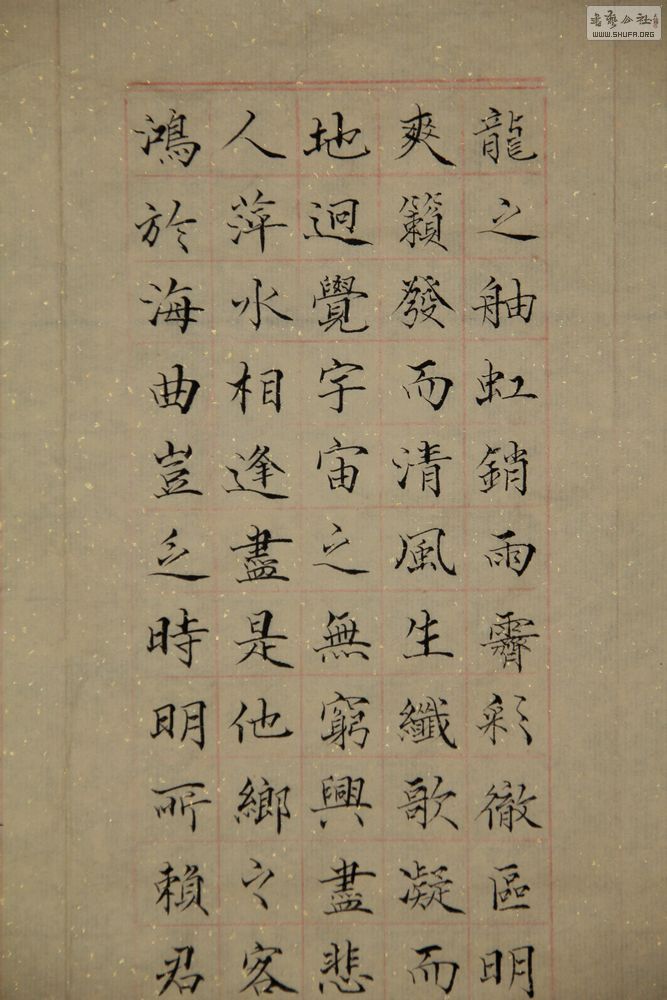 龍之舳虹銷雨霽彩徹區明
爽籟發而清風生纖歌凝而
地迥覺宇宙之無窮興盡悲
人萍水相逢盡是他鄉之客
鴻於海曲豈乏時明所賴君
书艺公社
WWW.SHUFA.ORG